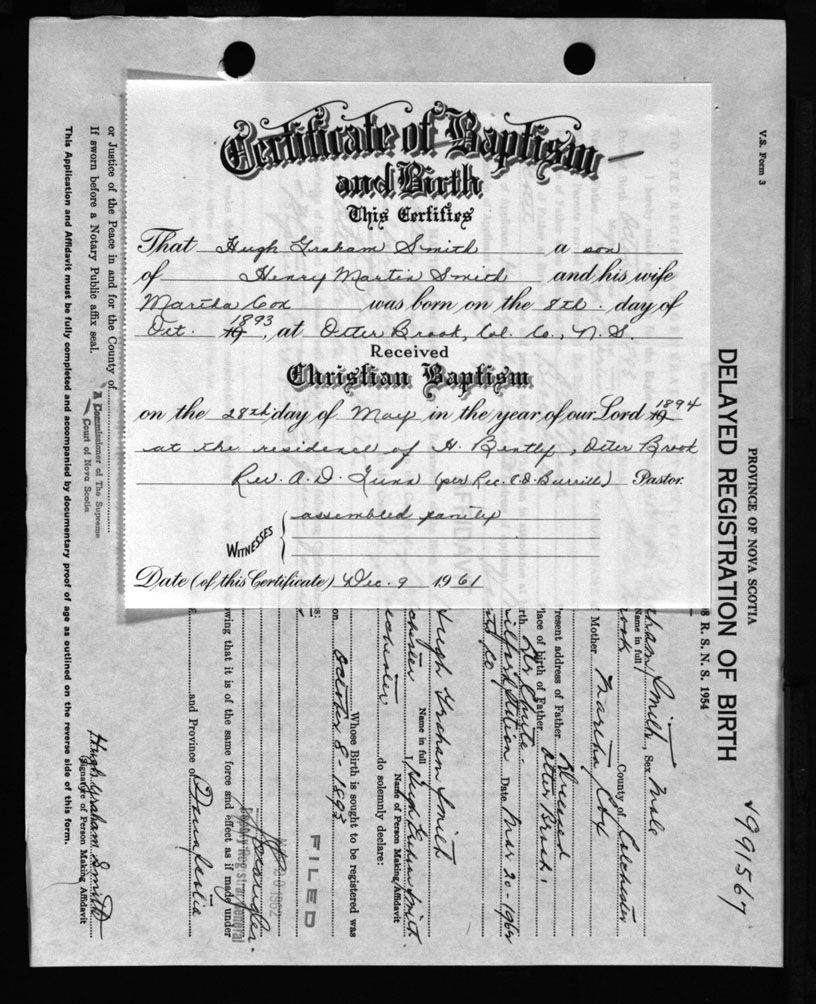 Certificate of Baptism
and Birth
This Certifies
That Hugh Graham Smith a son
of Henry Martin Smith and his wife
Martha Cox was born on the 8th. day of
Oct. 1893, at Otter Brook, Col. Co., N.S.
Received
Christian Baptism
on the 28th day of May in the year of our Lord 1894
at the residence of H. Bently, Otter Brook
Rev. A. D. Gunn (per Rec. C D. Burrill) Pastor.
WITNESSES
assembled family
Date (of this Certificate) Dec. 9 1961
V.S. Form 3
PROVINCE OF NOVA SCOTIA
DELAYED REGISTRATION OF BIRTH
991567
R. S. N. S. 1954
Smith, Sex Male
Name in full
County of Colchester
Mother Martha Cox
Present address of Father Deceased
Place of birth of Father Otter Brook,
Date Mar 20-1962
Hugh Graham Smith
Name in full
I, Hugh Graham Smith.
Name of Person Making Affidavit
do solemnly declare:
Whose Birth is sought to be registered was
on October 8-1893
FILED
1962
owing that it is of the same force and effect as if made under
Deputy Registrar General
and Province of Nova Scotia
or Justice of the Peace in and for the County of
A Commissioner of The Supreme
Court of Nova Scotia
If sworn before a Notary Public affix seal.
Hugh Graham Smith
Signature of Person Making Affidavit
This Application and Affidavit must be fully completed and accompanied by documentary proof of age as outlined on the reverse side of this form.